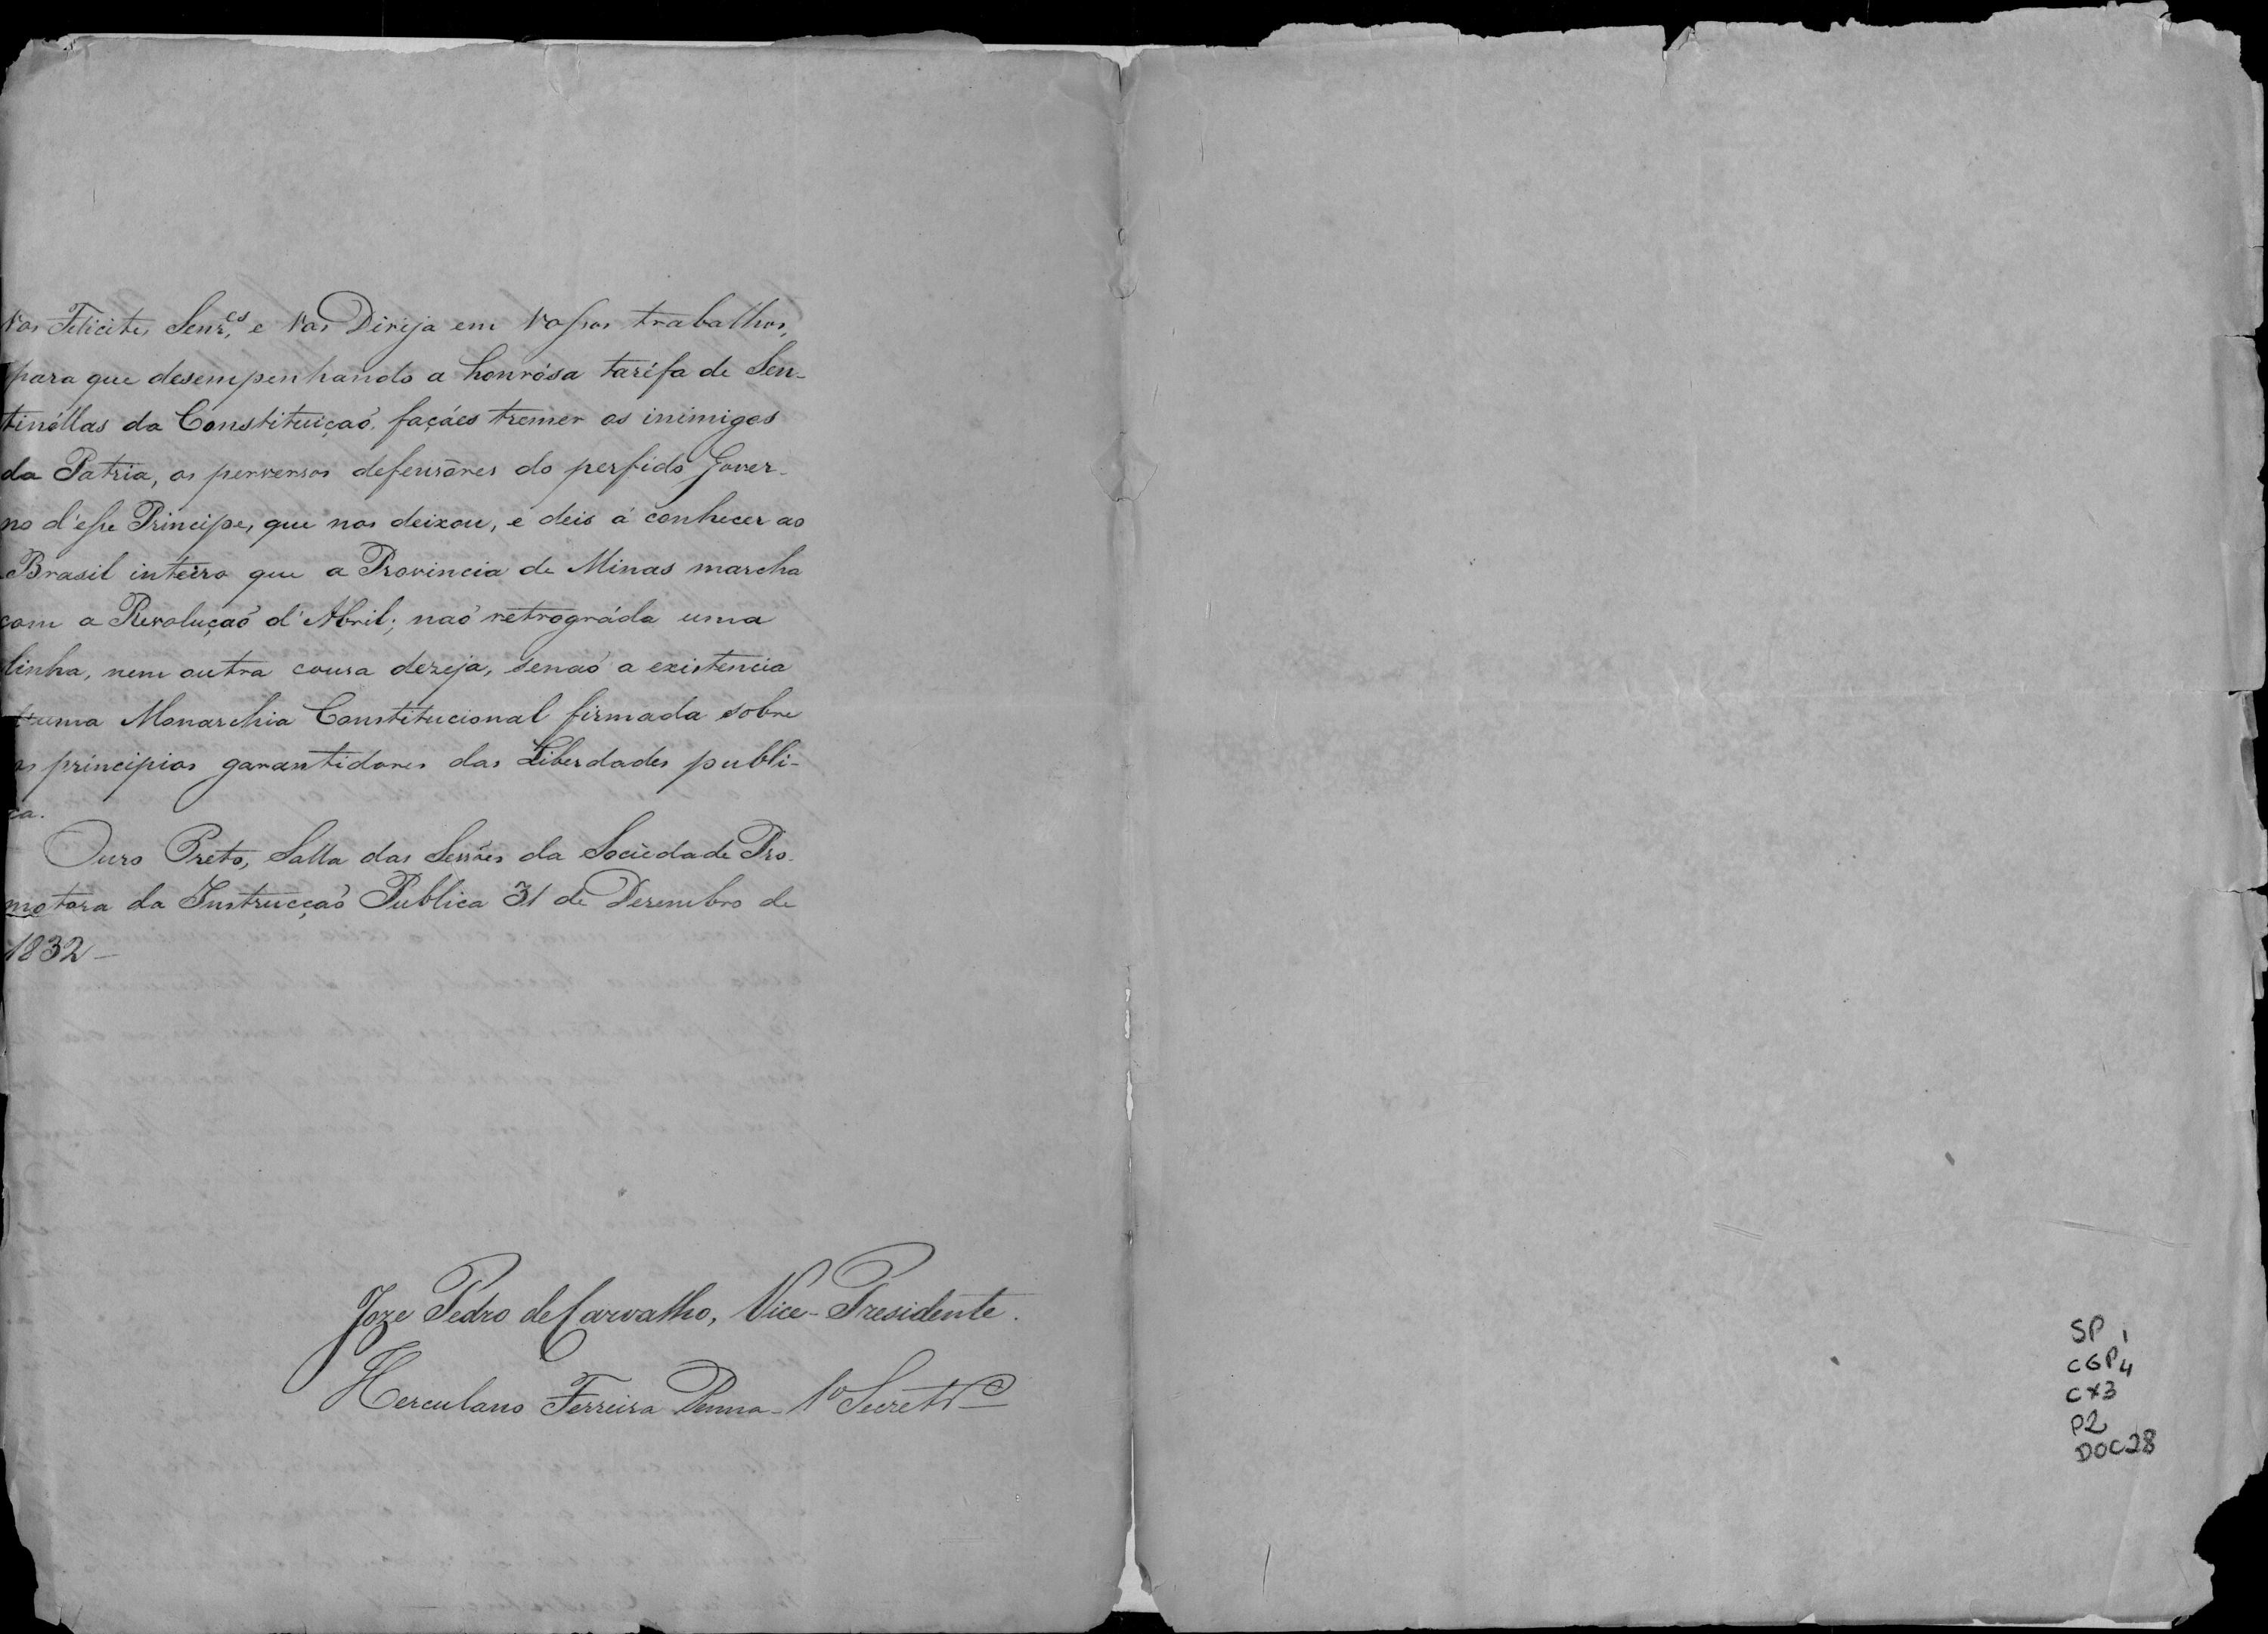 Vos Felicite, Senr.es, e Vos Dirija em Vossos trabalhos,
para que desempenhando a honrósa taréfa de Sen-
tinéllas da Constituiçaõ, façáes tremer os inimigos
da Patria, os perversos defensôres do perfido Gover-
no d'esse Principe, que nos deixou, e deis á conhecer ao
Brasil inteiro que a Provincia de Minas marcha
com a Revoluçaõ d'Abril; naõ retrográda uma
linha, nem outra cousa dezeja, senaõ a existencia
d'uma Monarchia Constitucional firmada sobre
os principios garantidores das Liberdades publi-
ca.
Ouro Preto, Salla das Sessões da Sociedade Pro-
motora da Instrucçaõ Publica 31 de Dezembro de
1832 —
Joze Pedro de Carvalho, Vice-Presidente.
Herculano Ferreira Penna - 1º Secretrº
SP 1
CGP 4
CX3
P2
DOC28